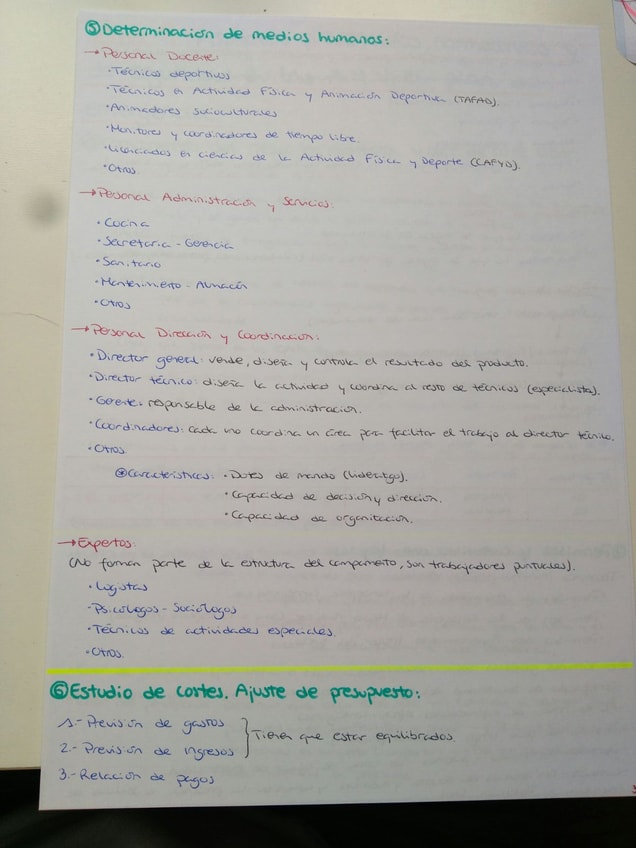 ⑤ Determinación de medios humanos:
→ Personal Docente:
· Técnicos deportivos
· Técnicos en Actividad Física y Animación Deportiva (TAFAD).
· Animadores socioculturales
· Monitores y coordinadores de tiempo libre.
· Licenciados en ciencias de la Actividad Física y Deporte (CAFYD).
· Otros.
→ Personal Administración y Servicios:
· Cocina
· Secretaria - Gerencia
· Sanitario
· Mantenimiento - Almacén
· Otros
→ Personal Dirección y Coordinación:
· Director general: vende, diseña y controla el resultado del producto.
· Director técnico: diseña la actividad y coordina al resto de técnicos (especialista).
· Gerente: responsable de la administración.
· Coordinadores: cada uno coordina un área para facilitar el trabajo al director técnico.
· Otros.
⊛ Características: · Dotes de mando (liderazgo).
· Capacidad de decisión y dirección.
· Capacidad de organización.
→ Expertos:
(No forman parte de la estructura del campamento, son trabajadores puntuales).
· Logistas
· Psicólogos - Sociólogos
· Técnicos de actividades especiales.
· Otros.
⑥ Estudio de cortes. Ajuste de presupuesto:
1.- Previsión de gastos
2.- Previsión de ingresos } Tienen que estar equilibrados
3.- Relación de pagos